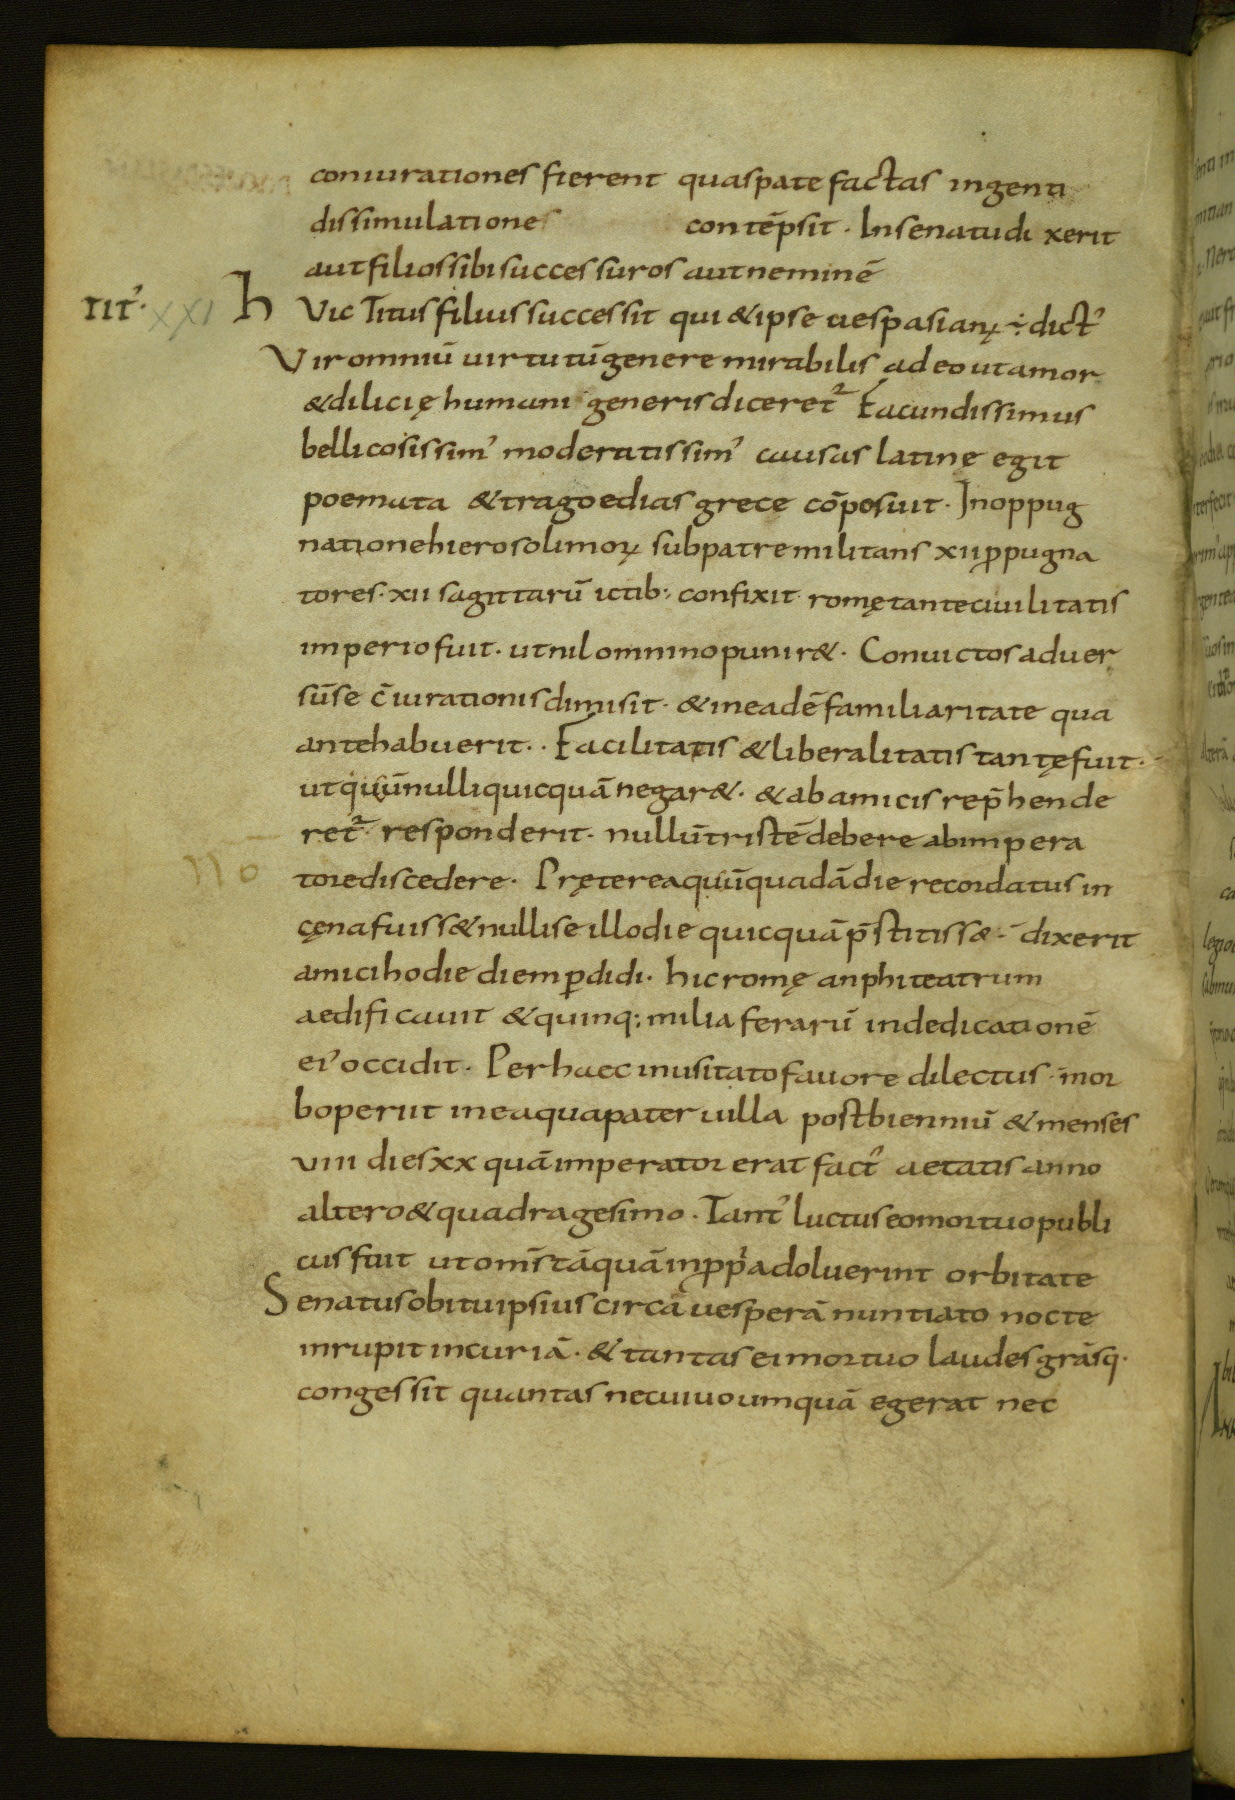 coniurationes fierent quas pate factas ingenti
dissimulatione contēpsit · In senatu dixerit
aut filios sibi successuros aut neminē
TIT' · XXI h Vic Titus filius successit qui & ipse uespasianꝰ ÷ dict'
Vir omniū uirtutū genere mirabilis adeo ut amor
& dilicię humani generis diceret᷑ Facundissimus
bellicosissim' moderatissim' causas latinę egit
poemata & tragoedias grece cōposuit · In oppug
natione hierosolimoꝝ sub patre militans xii ꝓpugna
tores · xii sagittarū ictib; confixit romę tante ciuilitatis
imperio fuit · ut nil omnino punir& · Conuictos aduer
sū se c̄iurationis dimisit · & in eadē familiaritate qua
ante habuerit · · Facilitatis & liberalitatis tantę fuit ·
ut quū nulli quicquā negar& · & ab amicis rep̄hende
ret᷑ responderit · nullū tristē debere ab impera
no tore discedere · Pręterea quū quadā die recordatus in
cęna fuiss& nulli se illo die quicquā p̄stitiss& · dixerit
amici hodie diem ꝑdidi · hic romę anphiteatrum
aedificauit & quinq; milia ferarū in dedicationē
ei' occidit · Per haec inusitato fauore dilectus · mor
bo periit in ea qua pater uilla post biennium & menses
viii dies xx quā imperator erat fact' aetatis anno
altero & quadragesimo · Tant' luctus eo mortuo publi
cus fuit ut om̄s tāquā in ꝓpria doluerint orbitate
Senatus obitu ipsius circā uesperā nuntiato nocte
inrupit in curiā · & tantas ei mortuo laudes grāsq ·
congessit quantas nec uiuo umquā egerat nec